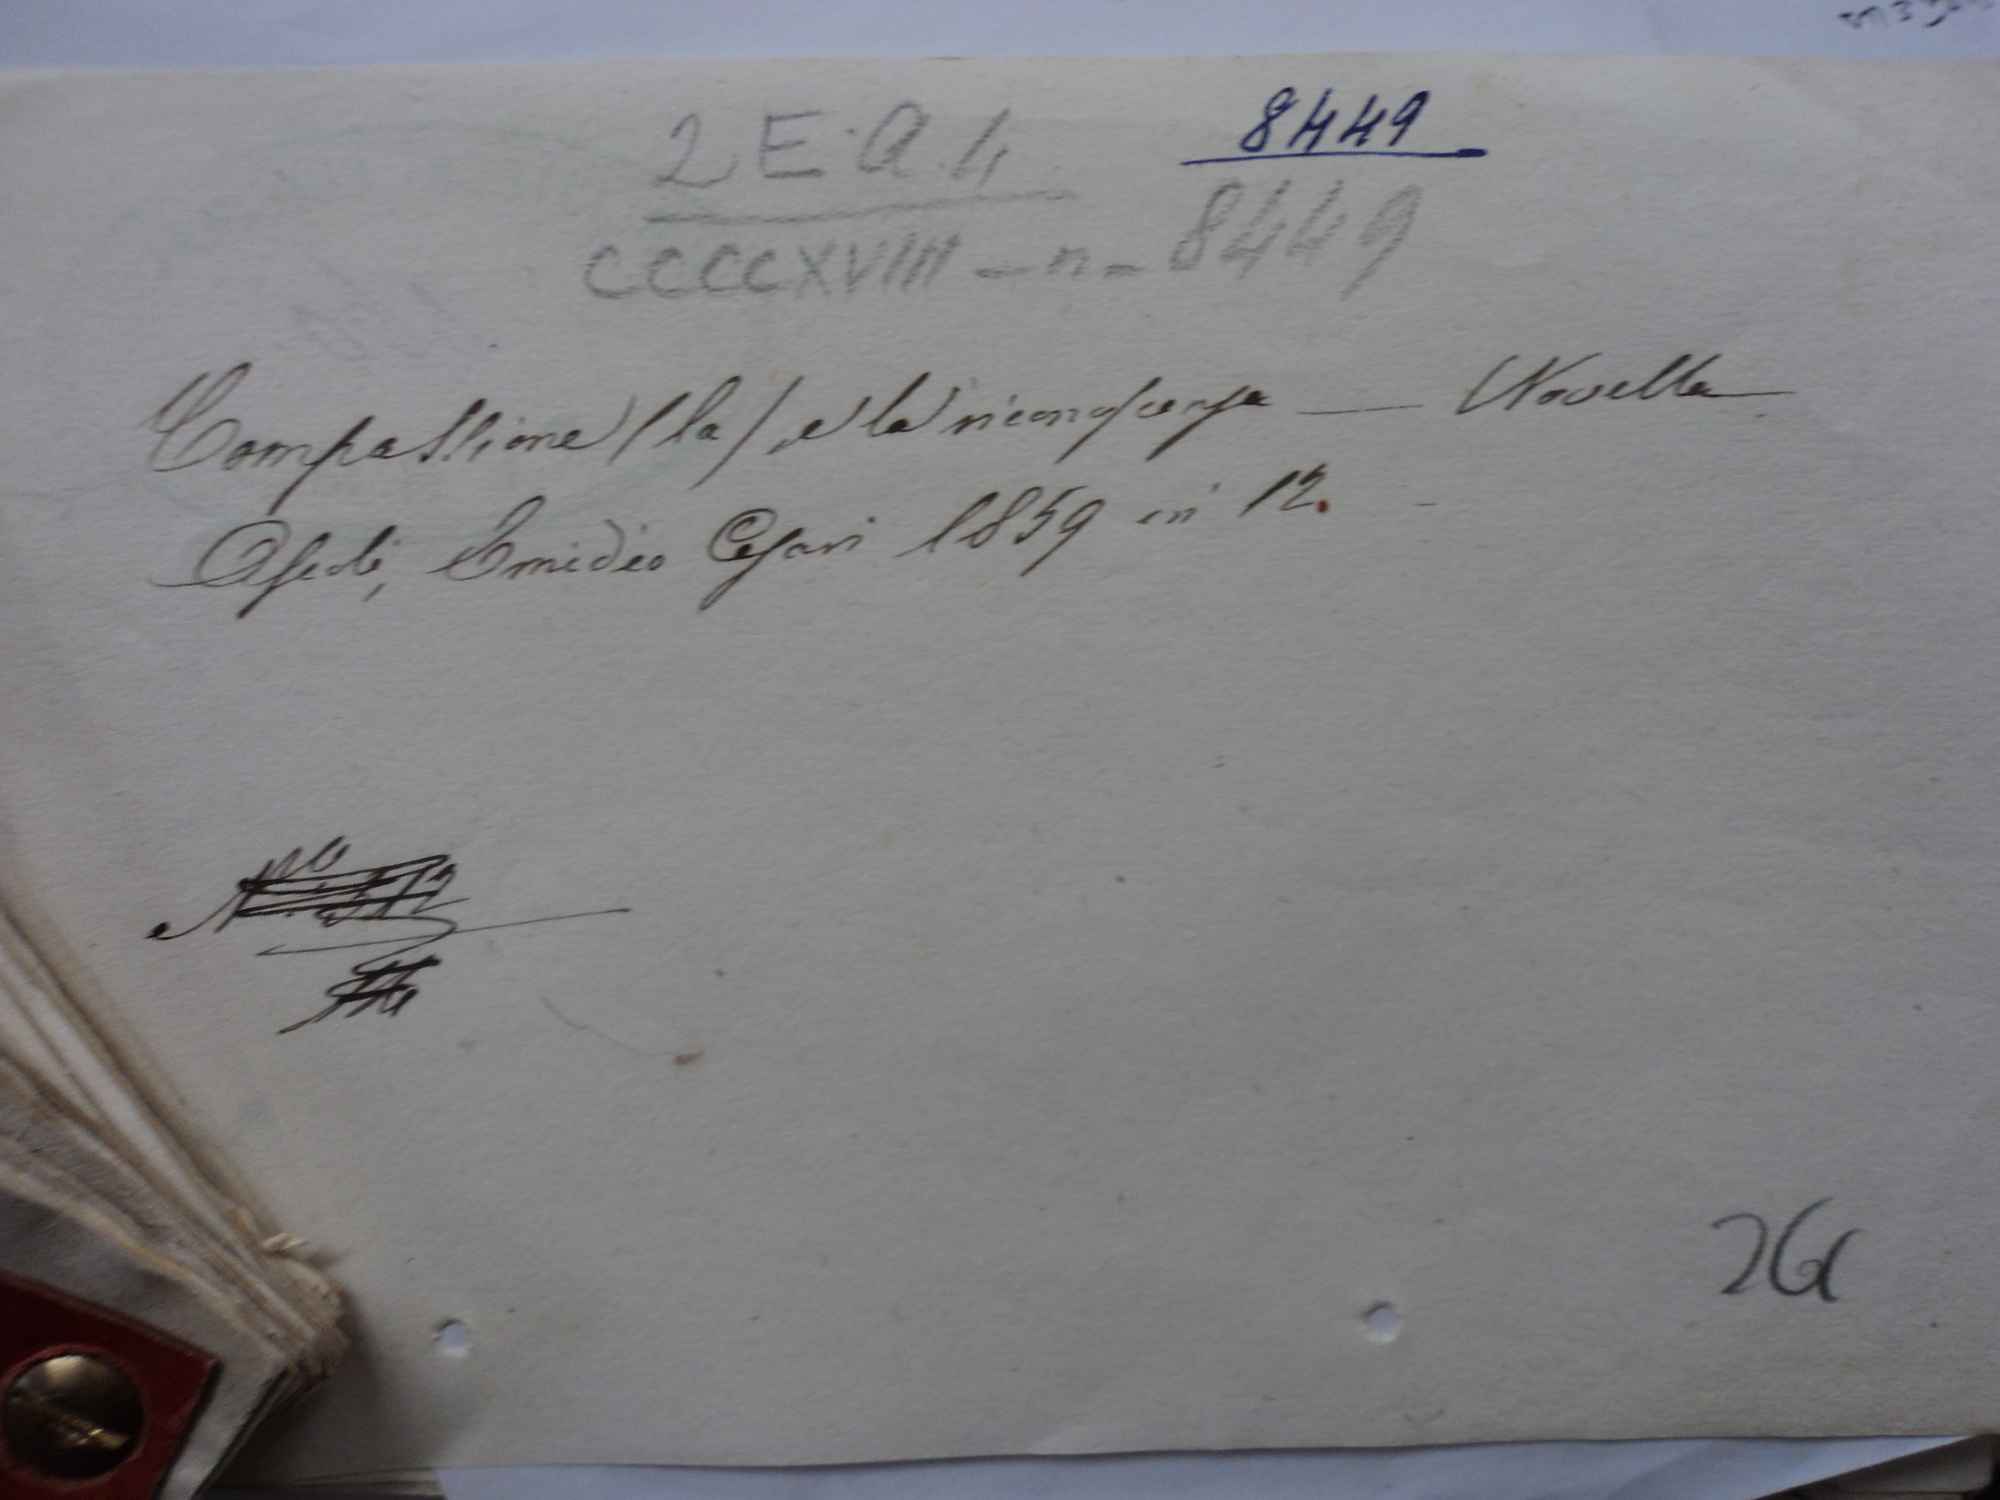 2 E. A. 4 8449
CCCCXVIII - n - 8449
Compassione (la), e la riconoscenza — Novella
Ascoli, Emidio Cesari 1859 in 12.